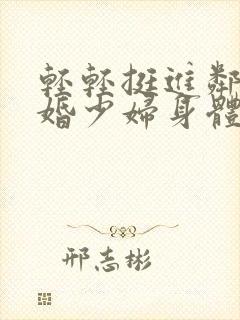 輕輕挺進鄰
婚少婦身體
邢志彬